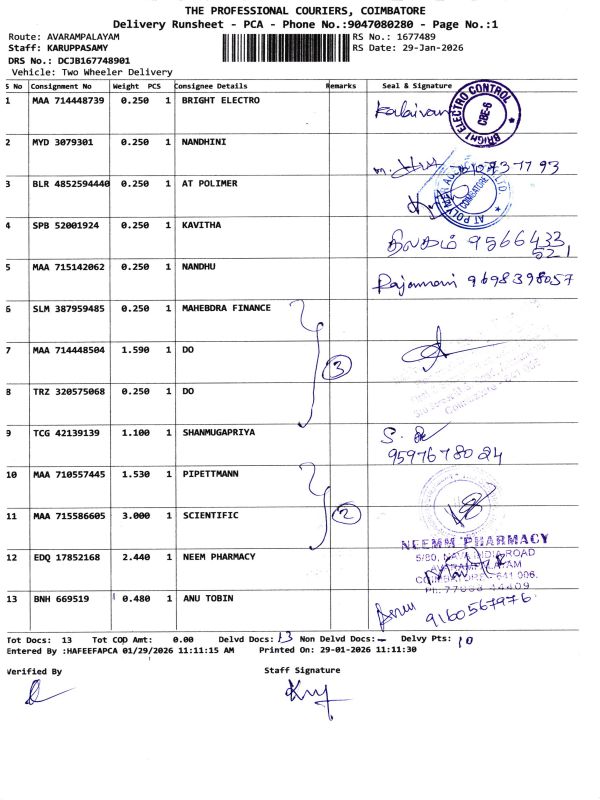 THE PROFESSIONAL COURIERS, COIMBATORE
Delivery Runsheet - PCA - Phone No.:9047080280 - Page No.:1
Route: AVARAMPALAYAM RS No.: 1677489
Staff: KARUPPASAMY RS Date: 29-Jan-2026
DRS No.: DCJB167748901
Vehicle: Two Wheeler Delivery
S No Consignment No Weight PCS Consignee Details Remarks Seal & Signature
1 MAA 714448739 0.250 1 BRIGHT ELECTRO Kalaivani BRIGHT ELECTRO CONTROL CBE-6
2 MYD 3079301 0.250 1 NANDHINI
3 BLR 4852594440 0.250 1 AT POLIMER COIMBATORE
4 SPB 52001924 0.250 1 KAVITHA திலகம் 9566433
521
5 MAA 715142062 0.250 1 NANDHU Rajamani 9698398057
6 SLM 387959485 0.250 1 MAHEBDRA FINANCE
7 MAA 714448504 1.590 1 DO 3
8 TRZ 320575068 0.250 1 DO
9 TCG 42139139 1.100 1 SHANMUGAPRIYA
9597678024
10 MAA 710557445 1.530 1 PIPETTMANN
11 MAA 715586605 3.000 1 SCIENTIFIC 2
12 EDQ 17852168 2.440 1 NEEM PHARMACY NEEMM PHARMACY
5/80, NAVA INDIA ROAD
AVARAMPALAYAM
COIMBATORE - 641 006.
13 BNH 669519 0.480 1 ANU TOBIN 9160567976
Tot Docs: 13 Tot COD Amt: 0.00 Delvd Docs: 13 Non Delvd Docs: - Delvy Pts: 10
Entered By :HAFEEFAPCA 01/29/2026 11:11:15 AM Printed On: 29-01-2026 11:11:30
Verified By Staff Signature